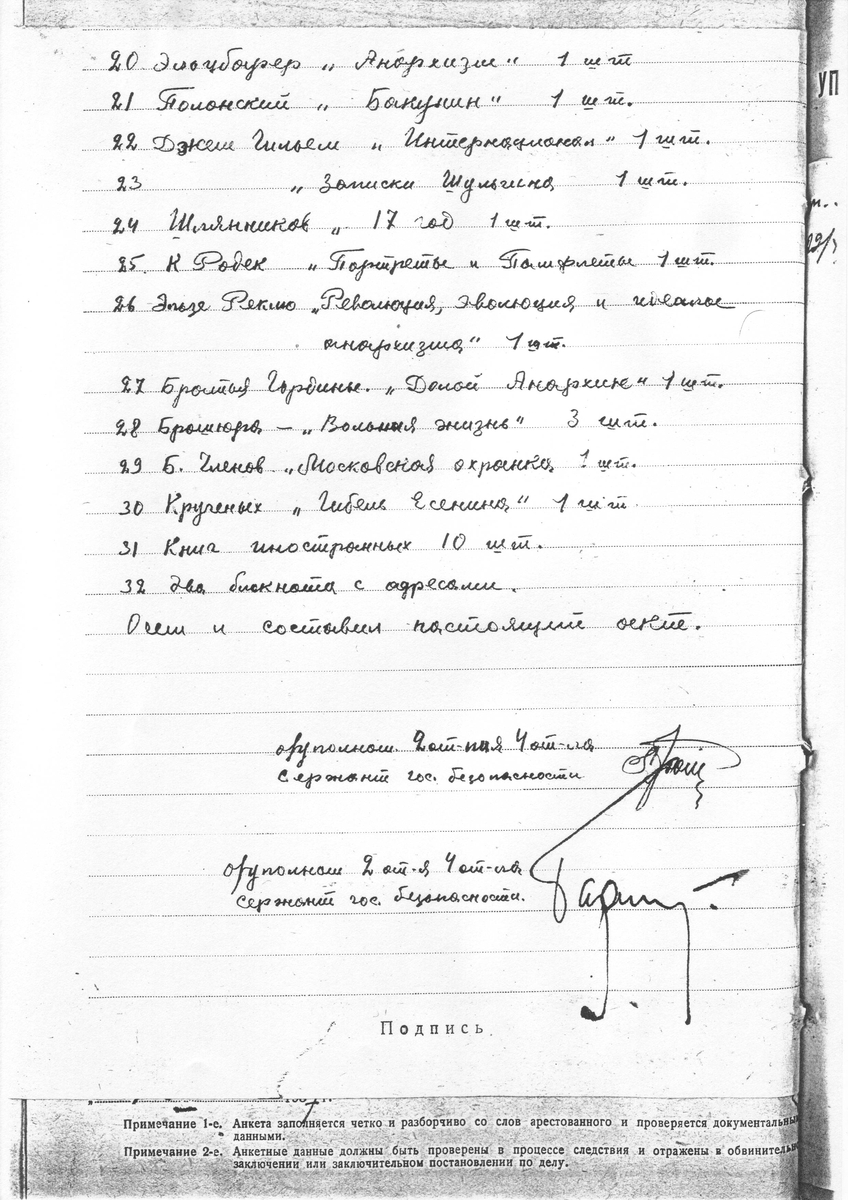 20 Эльцбахер „ Анархизм " 1 шт
21 Полонский „ Бакунин " 1 шт.
22 Джемс Гильем „ Интернационал " 1 шт.
23 „ Записки Шульгина 1 шт.
24 Шляпников „ 17 год 1 шт.
25. К Радек „ Портреты и Памфлеты 1 шт.
26 Элизе Реклю „Революция, эволюция и идеалы
анархизма" 1 шт.
27 Братья Гордины. „Долой Анархию" 1 шт.
28 Брошюра – „Вольная жизнь" 3 шт.
29 Б. Членов „Московская охранка 1 шт.
30 Крученых „ Гибель Есенина" 1 шт
31 Книг иностранных 10 шт.
32 два блокнота с адресами.
О чем и составил настоящий акт.
о/уполном. 2 от-ния 4 от-ла
Сержант гос. безопасности
о/уполном 2 от-я 4 от-ла
Сержант гос. безопасности.
Подпись
УП
Примечание 1-е. Анкета заполняется четко и разборчиво со слов арестованного и проверяется документальны
данными.
Примечание 2-е. Анкетные данные должны быть проверены в процессе следствия и отражены в обвинительн
заключении или заключительном постановлении по делу.